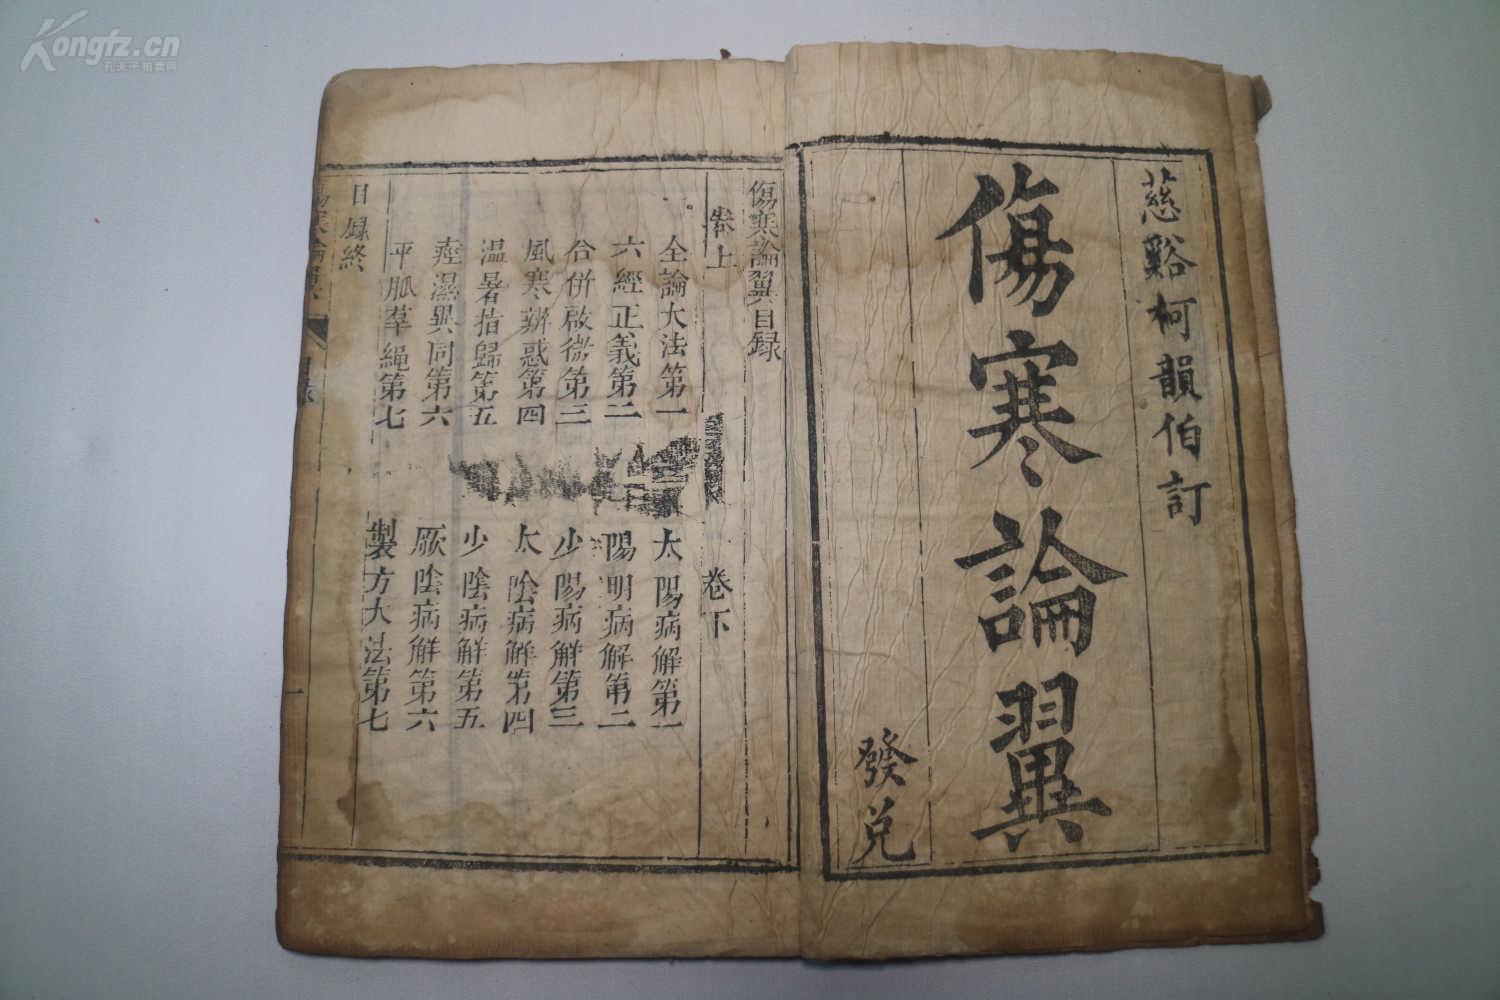 Kongfz.cn
孔夫子拍卖网
慈谿柯韻伯訂
傷寒論翼
發兌
傷寒論翼目録
卷上
全論大法第一
六經正義第二
合併啟微第三
風寒辨惑第四
温暑指歸第五
痙濕異同第六
平脈準繩第七
卷下
太陽病解第一
陽明病解第二
少陽病解第三
太陰病解第四
少陰病解第五
厥陰病解第六
製方大法第七
目録終
一